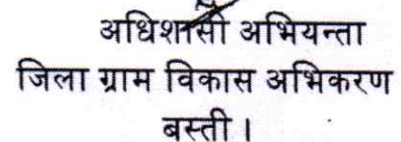 अधिशासी अभियन्ता
जिला ग्राम विकास अभिकरण
बस्ती ।